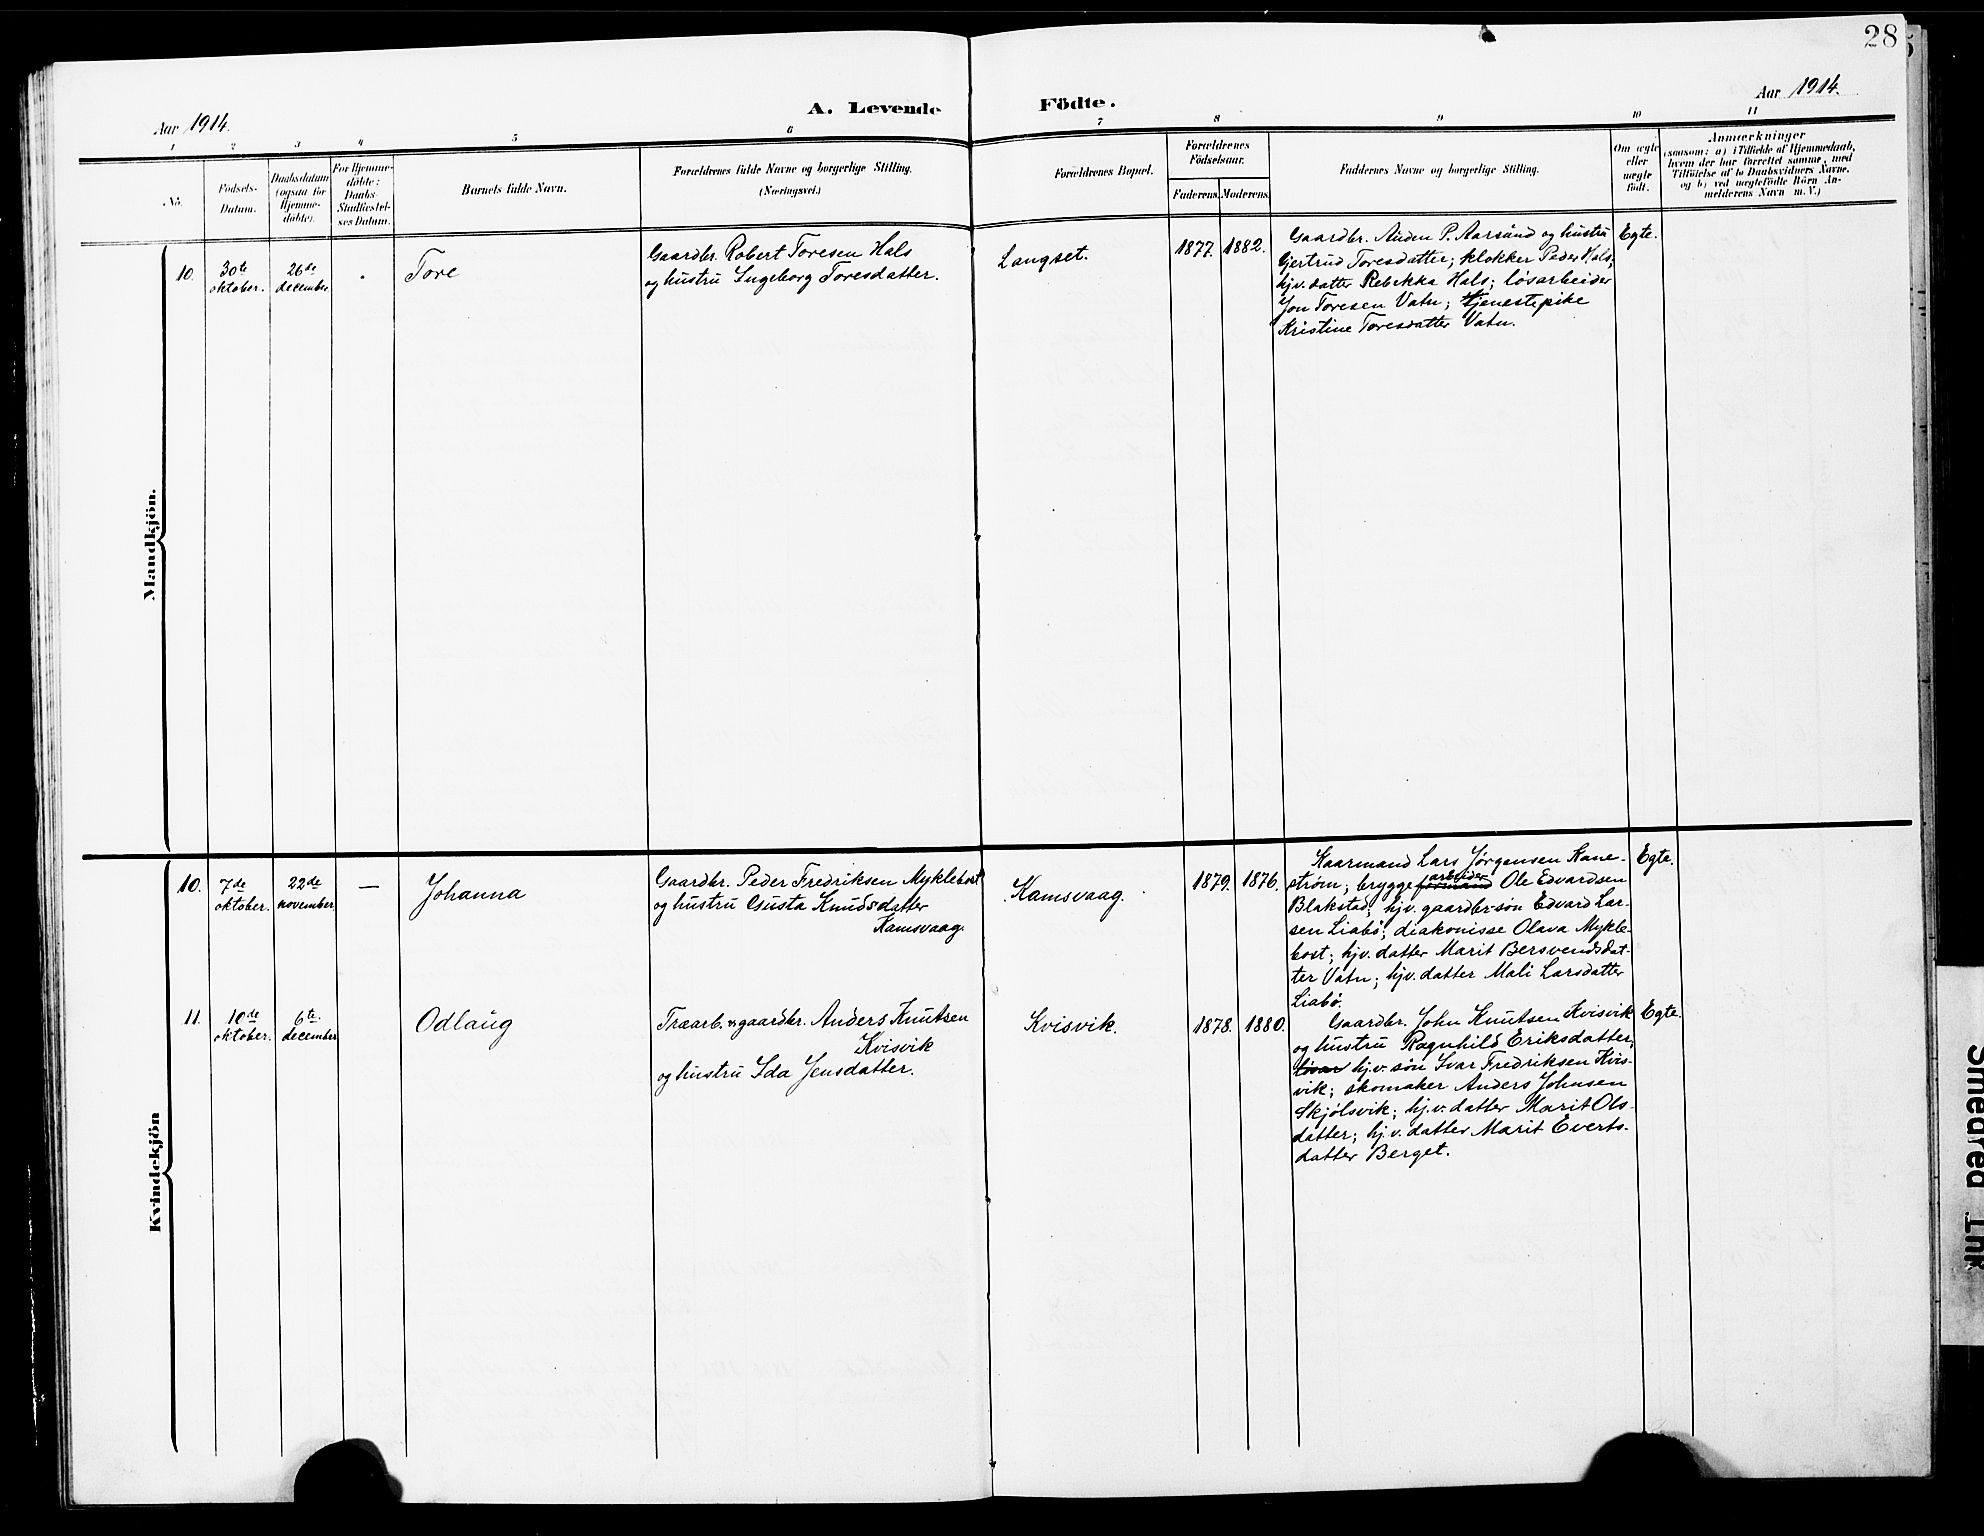 28
Aar 1914.
A. Levende Födte.
Aar 1914.
1 2 3 4 5 6 7 8 9 10 11
No.
Fødsels-
Datum.
Daabsdatum
(ogsaa for
Hjemme-
døbte).
For Hjemme-
døbte:
Daabs-
Stadfæstel-
ses Datum.
Barnets fulde Navn.
Forældrenes fulde Navne og borgerlige Stilling.
(Næringsvei.)
Forældrenes Bopæl.
Forældrenes
Fødselsaar.
Faderens. Moderens.
Faddernes Navne og borgerlige Stilling.
Om ægte
eller
uægte
født.
Anmærkninger
(saasom: a) i Tilfælde af Hjemmedaab,
hvem der har forrettet samme, med
Tilføielse af to Daabsvidners Navne.
og b) ved uægtefødte Börn An-
melderens Navn m. V.)
Mandkjön.
10.
30te
oktober.
26de
december
Tore
Gaardbr. Robert Toresen Hals
og hustru Ingeborg Toresdatter.
Langset.
1877. 1882.
Gaardbr. Auden P. Aarsund og hustru
Gjertrud Toresdatter; klokker Peder Hals;
hjv. datter Rebekka Hals; løsarbeider
Jon Toresen Vatn; tjenestepike
Kristine Toresdatter Vatn.
Egte.
Kvindekjön
10.
7de
oktober.
22de
november
—
Johanna
Gaardbr. Peder Fredriksen Myklebost
og hustru Gusta Knudsdatter
Kamsvaag.
Kamsvaag.
1879. 1876.
Kaarmand Lars Jørgensen Kane-
strøm; bryggeformand arbeider Ole Edvardsen
Blakstad; hjv. gaardbr. søn Edvard Lar-
sen Liabø; diakonisse Olava Mykle-
bost; hjv. datter Marit Bersvendsdat-
ter Vatn; hjv. datter Mali Larsdatter
Liabø.
Egte.
11.
10de
oktober.
6te
december
Odlaug
Træarb. & gaardbr. Anders Knutsen
Kvisvik
og hustru Ida Jensdatter.
Kvisvik.
1878. 1880.
Gaardbr. John Knutsen Kvisvik
og hustru Ragnhild Eriksdatter;
løsar hj.v. søn Ivar Fredriksen Kvis-
vik; skomaker Anders Johnsen
Skjølsvik; hj.v. datter Marit Ols-
datter; hj.v. datter Marit Everts-
datter Berget.
Egte.
Smeared Ink